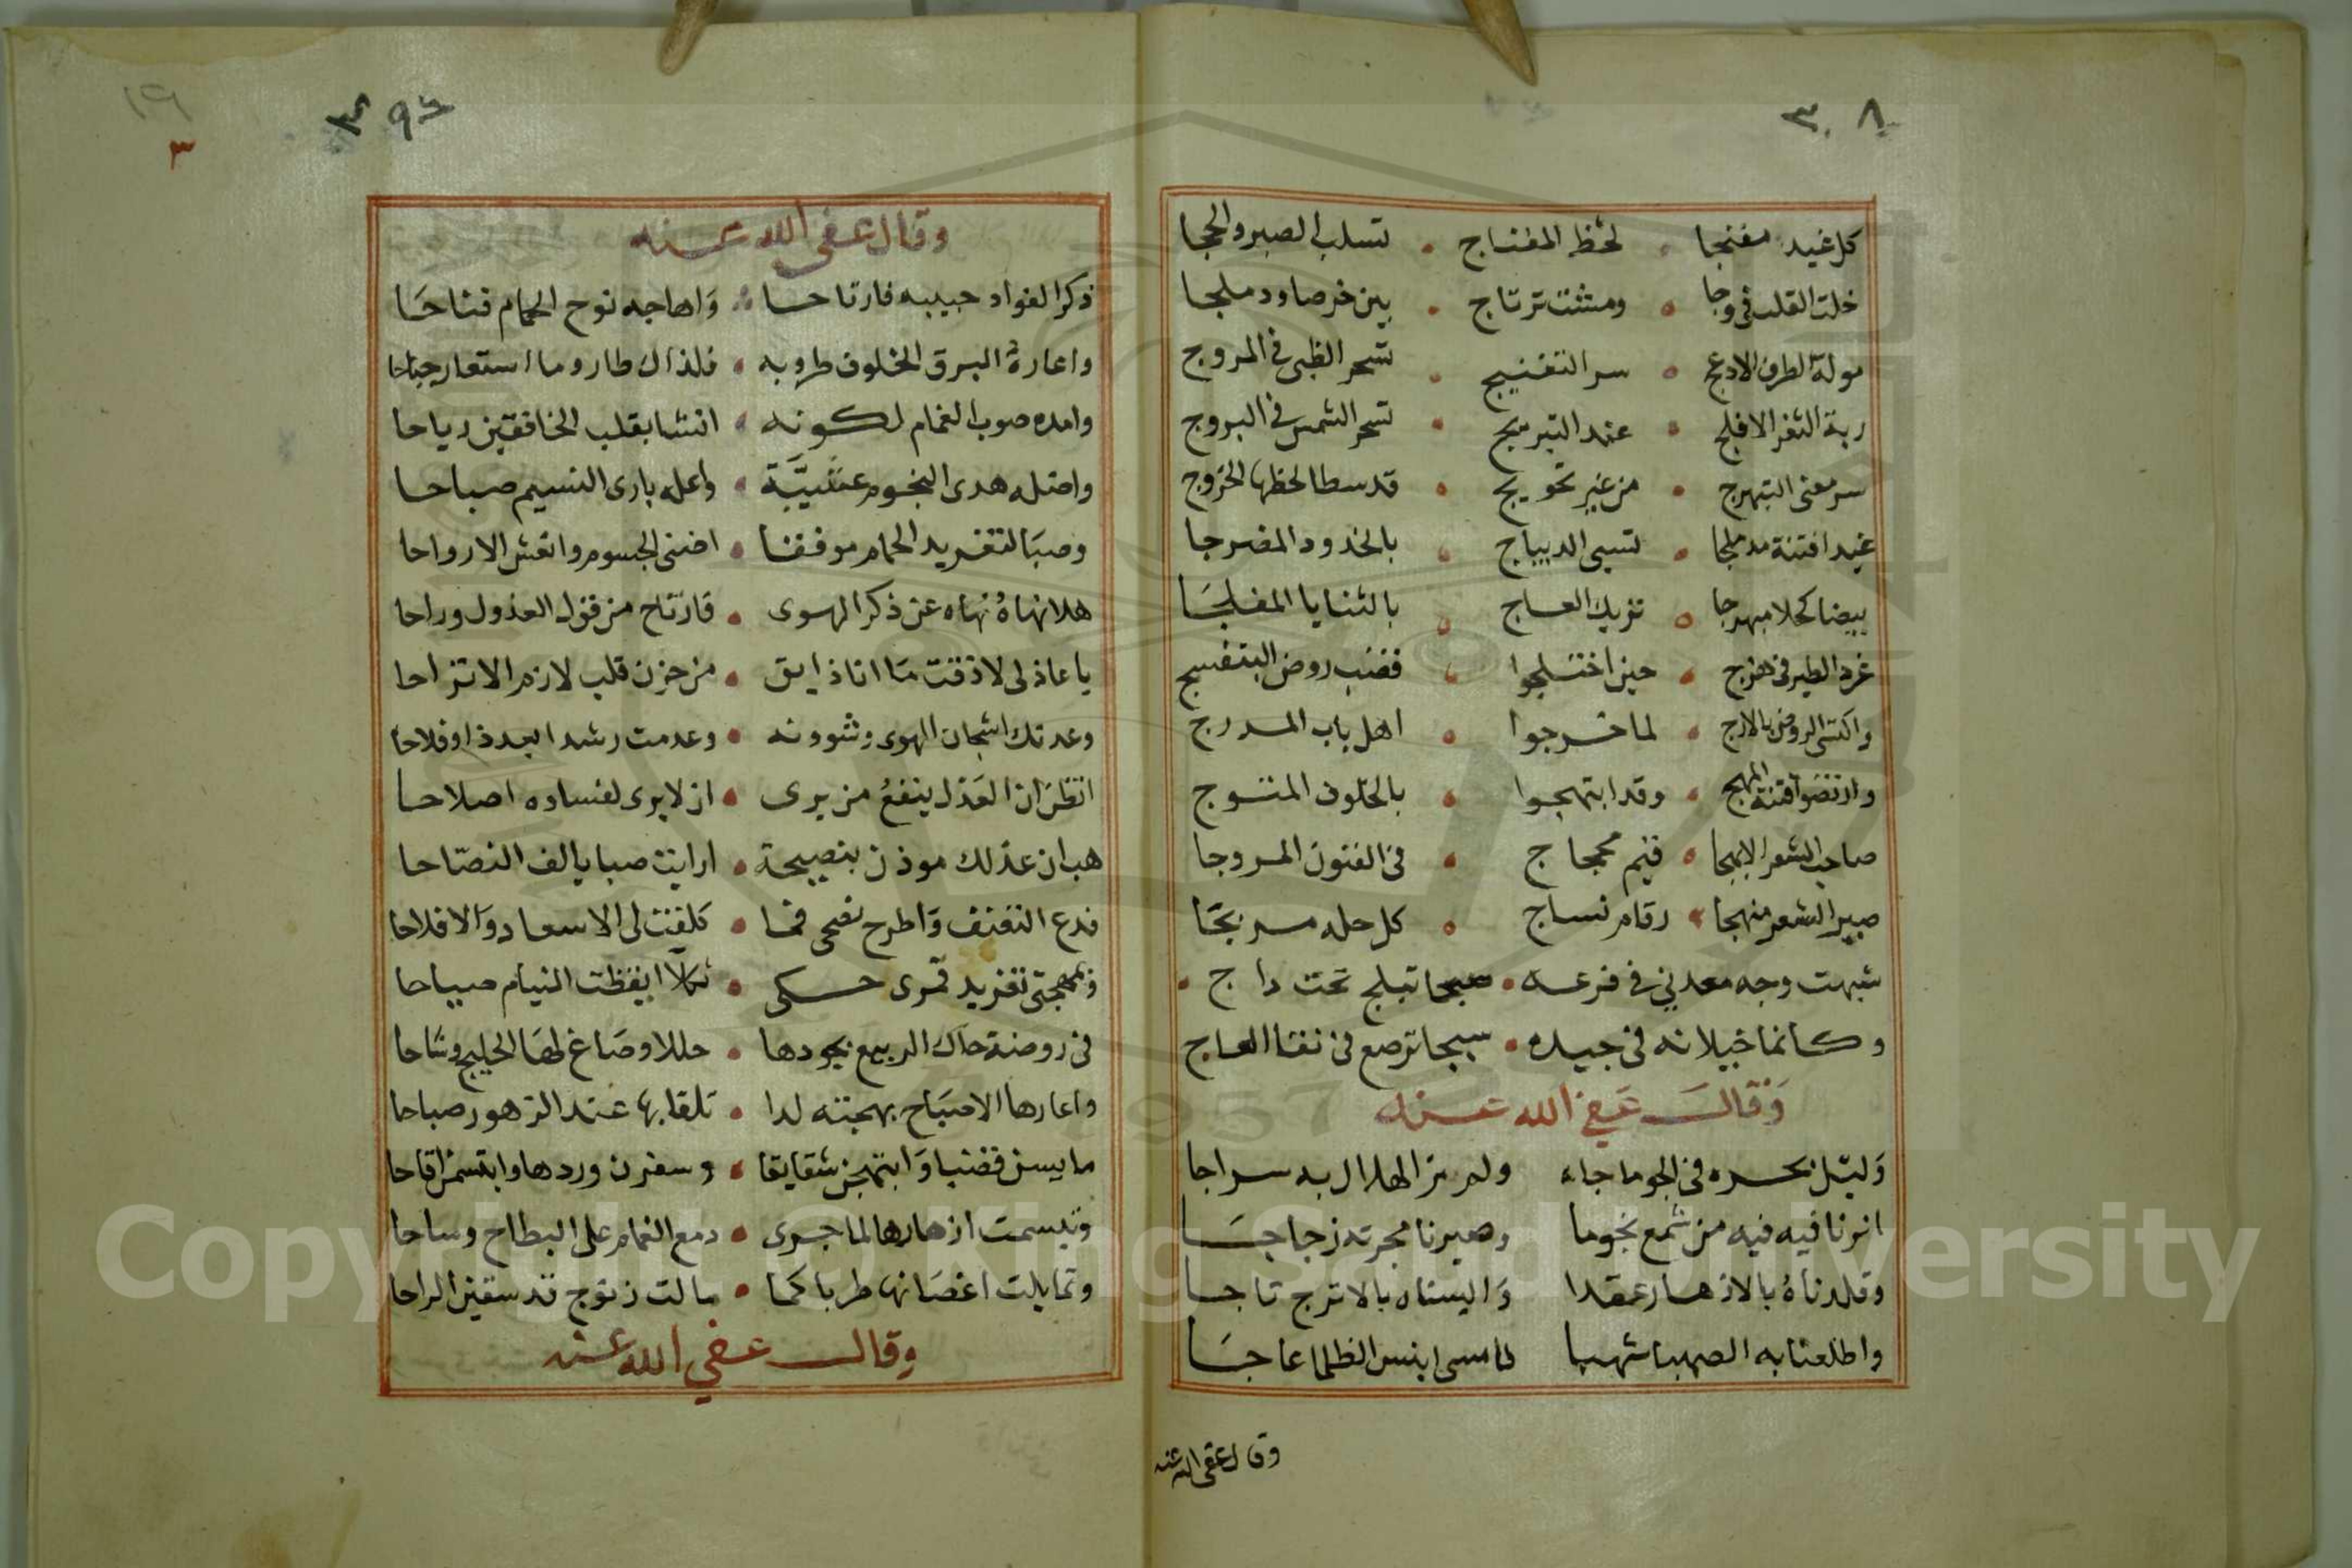 ٣٨
كل غيد مغنجا • لحظ المغناج • تسلب الصبر والحجا
خلت القلب في وجا • ومشت ترتاج • بين خرصا ودملجا
مولة الطرف الادعج • سر التغنيج • تسحر الظبى في المروج
ربة الثغر الافلج • عند التبريج • تسحر الشمس في البروج
سر معنى التبهرج • من غير تحويج • قد سطا لحظها الخروج
غيد افتنة مدملجا • تسبى الديباج • بالخدود المضرجا
بيضا كحلا مبهرجا • تزيك العاج • بالثنايا المفلجا
غرد الطير في هزج • حين اختلجوا • قضب روض البنفسج
واكتسى الروض بالارج • لما خرجوا • اهل باب المدرج
وارتضوا فتنة المهج • وقد ابتهجوا • بالحلون المنتوج
صاحب الشعر الابهجا • فيم محجاج • في الفنون المروجا
صير الشعر منهجا • رقام نساج • كل حله مسربجا
شبهت وجه معدنى في فرعه • صبحا تبلج تحت داج •
وكانما خيلانه في جيده • سبجا ترصع في نقا العاج
وقال عفى الله عنه
وليل بحره في الجو ماجاء ولم نر الهلال به سراجا
انرنا فيه فيه من شمع نجوما وصيرنا مجرته زجاجا
وقلدناه بالازهار عقدا والبسناه بالاترج تاجا
واطلعنا به الصهبا شهبا فامسى ابنس الظلما عاجا
وقال عفى الله عنه
١٩
٣
٣٩
وقال عفى الله عنه
ذكر الفواد حبيبه فارتاحا • واهاجه نوح الحمام فناحا
واعارة البرق الخلوف طروبه • فلذاك طار وما استعار جناحا
وامده صوب الغمام لكونه • انشا بقلب الخافقين رياحا
واضله هدى النجوم عشية • واعله بارى النسيم صباحا
وصبا لتغريد الحمام موفقا • اضنى الجسوم وانعش الارواحا
هلا نهاة نهاه عن ذكر الهوى • فارتاح من قول العذول وراحا
يا عاذلى لا ذقت ما انا ذايق • من حزن قلب لازم الاتراحا
وعدتك اشجان الهوى وشوونه • وعدمت رشدا بعدة او فلاحا
انظن ان العذل ينفع من يرى • ان لا يرى لفساده اصلاحا
هب ان عذلك موذن بنصيحة • ارايت صبا يالف النصاحا
فدع التعنف واطرح نصحى فما • كلفت لى الاسعاد والافلاحا
وبمهجتى تغريد قمرى حكى • ثكلا ايقظت النيام صياحا
في روضة حاك الربيع بجودها • حللا وصاغ لها الخليج وشاحا
واعارها الاصباح بهجته لدا • تلقا بها عند الزهور صباحا
ما يسن قضبا وابتهجن شقايقا • وسفرن وردها وابتسمن اقاحا
وتبسمت ازهارها لما جرى • دمع الغمام على البطاح وساحا
وتمايلت اغصانها طربا كما • مالت زنوج قد سقين الراحا
وقال عفي الله عنه
Copyright © King Saud University
1957